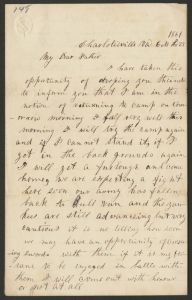 145
1861
Charlottesville Va
My Dear Father
I have taken this
opportunity of droping you
to inform you that I am in the
notion of returning to camp on tom-
orrow morning I fell very well this
morning I will try the camp again
and if I cannot stand it, if I
got in the back grounds again
I will get a furlough and come
home, we are expecting a fight
here soon our army has fallen
back to Bull Run and the yan-
kus are still advancing but very
cautious it is no telling how soon
we may have an opportunity of
swords with them if it is my for-
tune to be engaged in battle with
them I will come out with honor
or not at all